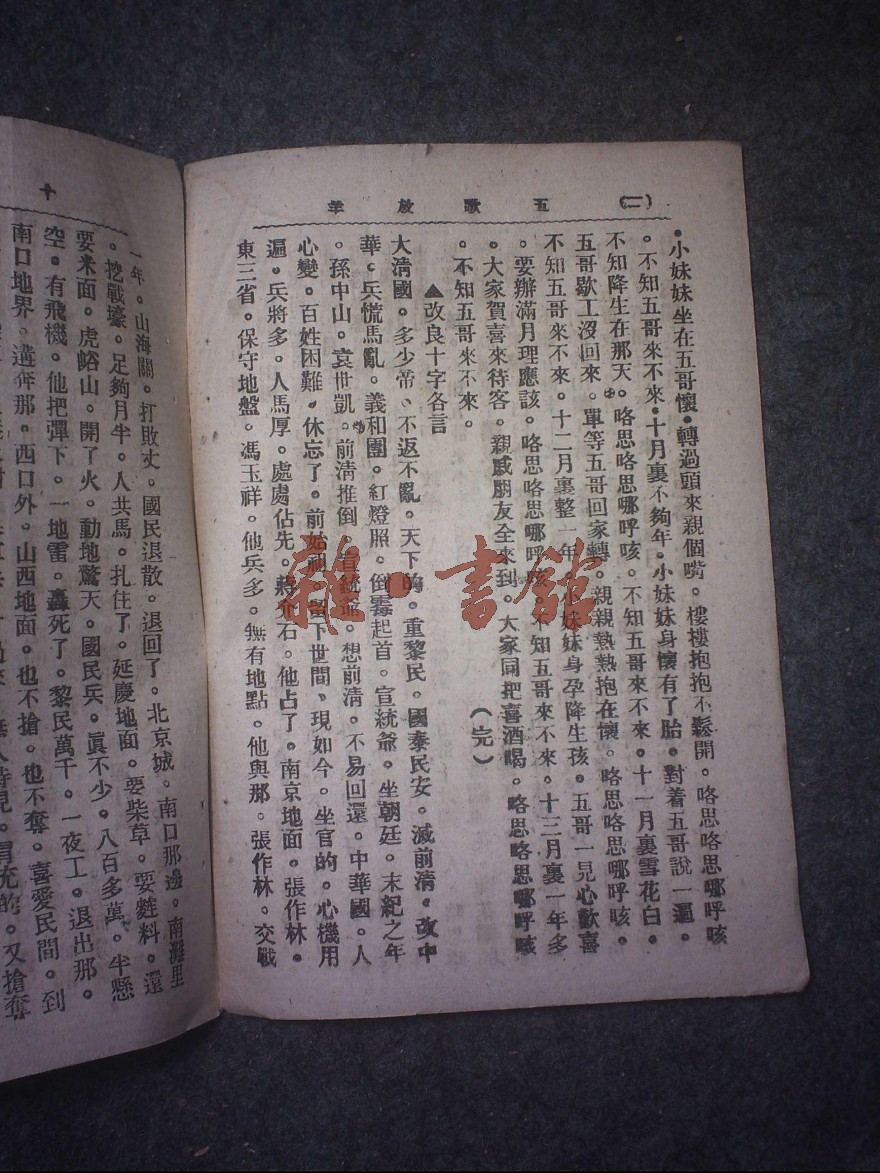 (二) 五歌放羊
。小妹妹坐在五哥懷。轉過頭來親個嘴。樓樓抱抱不鬆開。咯思咯思哪呼咳
。不知五哥來不來。十月裏不夠年。小妹妹身懷有了胎。對着五哥說一遍。
不知降生在那天。咯思咯思哪呼咳。不知五哥來不來。十一月裏雪花白。
五哥歇工沒回來。單等五哥回家轉。親親熱熱抱在懷。咯思咯思哪呼咳。
不知五哥來不來。十二月裏整一年。小妹妹身孕降生孩。五哥一見心歡喜
。要辦滿月理應該。咯思咯思哪呼咳。不知五哥來不來。十三月裏一年多
。大家賀喜來待客。親戚朋友全來到。大家同把喜酒喝。咯思咯思哪呼咳
。不知五哥來不來。 (完)
▲改良十字各言
大清國。多少帝。不返不亂。天下的。重黎民。國泰民安。滅前清。改中
華。兵慌馬亂。義和團。紅燈照。倒霉起首。宣統爺。坐朝廷。末紀之年
。孫中山。袁世凱。前清推倒。宣統爺。想前清。不易回還。中華國。人
心變。百姓困難。休忘了。前始祖。留下世間。現如今。坐官的。心機用
遍。兵將多。人馬厚。處處佔先。蔣介石。他占了。南京地面。張作林。
東三省。保守地盤。馮玉祥。他兵多。無有地點。他與那。張作林。交戰
十
一年。山海關。打敗丈。國民退散。退回了。北京城。南口那邊。南灘里
。挖戰壕。足夠月半。人共馬。扎住了。延慶地面。要柴草。要糧料。還
要米面。虎峪山。開了火。動地驚天。國民兵。眞不少。八百多萬。半懸
空。有飛機。他把彈下。一地雷。轟死了。黎民萬千。一夜工。退出那。
南口地界。遘奔那。西口外。山西地面。也不搶。也不奪。喜愛民間。到
無人
冒充的。又搶奪
雜·書館